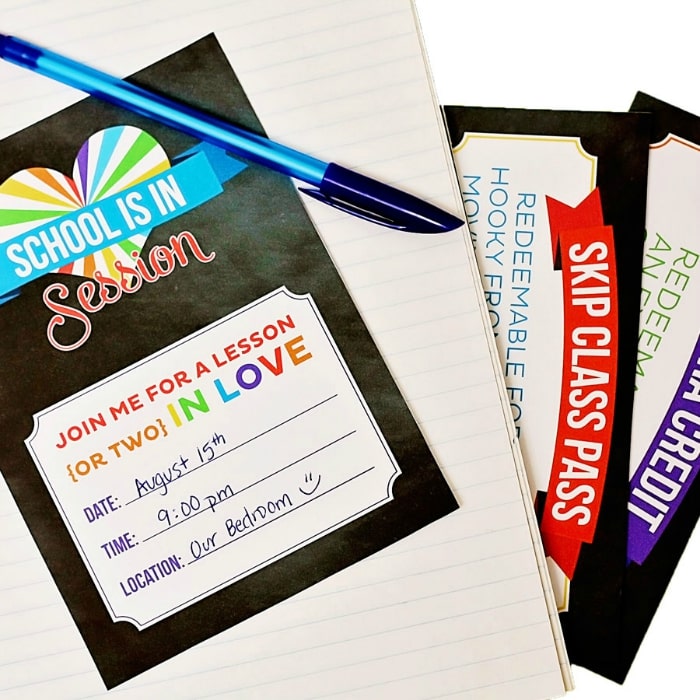 SCHOOL IS IN
Session
JOIN ME FOR A LESSON
{OR TWO} IN LOVE
DATE: August 15th
TIME: 9:00 pm
LOCATION: Our Bedroom
REDEEMABLE FOR
HOOKY FROM
SKIP CLASS PASS
CREDIT